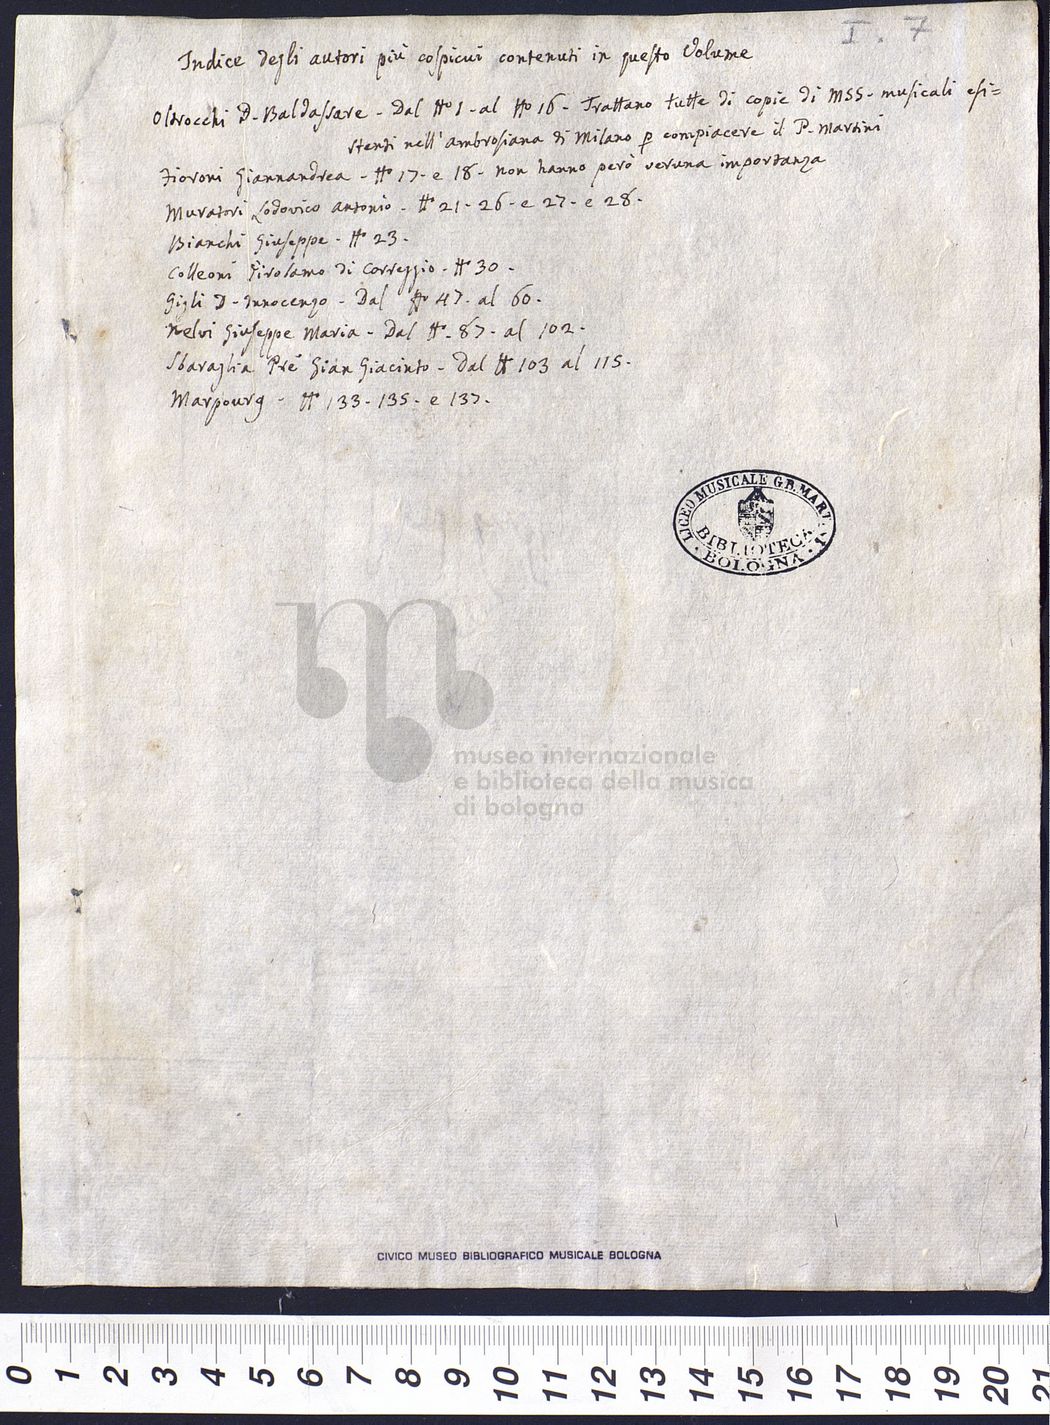 I. 7
Indice degli autori più cospicui contenuti in questo Volume
Oltrocchi D. Baldassare - Dal No 1 - al No 16 - Trattano tutte di copie di MSS - musicali esi=
stenti nell'ambrosiana di Milano p compiacere il P. Martini
Fioroni Giannandrea - No 17 - e 18 - non hanno però veruna importanza
Muratori Lodovico antonio - No 21 - 26 - e 27 - e 28 -
Bianchi Giuseppe - No 23 -
Colleoni Girolamo di Correggio - No 30 -
Gigli D - Innocenzo - Dal No 47 - al 60 -
Nelvi Giuseppe Maria - Dal No - 87 - al 102 -
Sbaraglia Pre Gian Giacinto - Dal No 103 al 115 -
Marpourg - No 133 - 135 - e 137 -
LICEO MUSICALE G.B. MARTINI
BIBLIOTECA
BOLOGNA
museo internazionale
e biblioteca della musica
di bologna
CIVICO MUSEO BIBLIOGRAFICO MUSICALE BOLOGNA
0 1 2 3 4 5 6 7 8 9 10 11 12 13 14 15 16 17 18 19 20 21